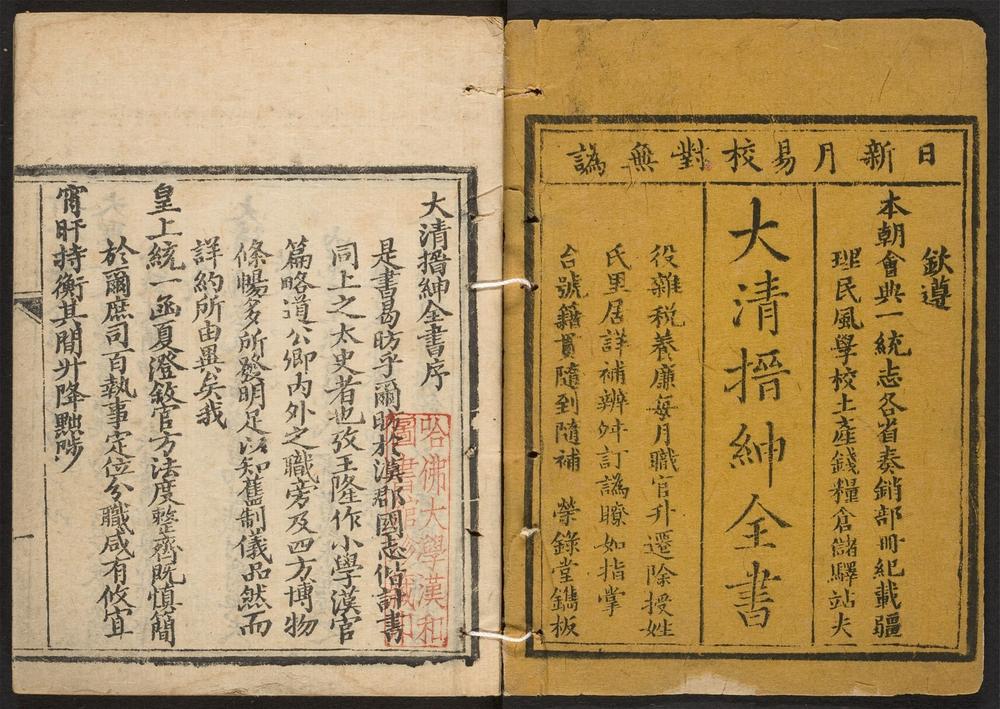 日新月易校對無譌
欽遵
本朝會典一統志各省奏銷部冊紀載疆
理民風學校土產錢糧倉儲驛站夫
大清搢紳全書
役雜稅養廉每月職官升遷除授姓
氏里居詳補辨舛訂譌瞭如指掌
台號籍貫隨到隨補 榮錄堂鐫板
大清搢紳全書序
是書曷昉乎爾昉於漢郡國志偕計書
同上之太史者也攷王隆作小學漢官
篇略道公卿內外之職旁及四方博物
條暢多所發明足以知舊制儀品然而
詳約所由異矣我
皇上統一函夏澄敘官方法度整齊既慎簡
於爾庶司百執事定位分職咸有攸宜
宵旰持衡其間升降黜陟
哈佛大學漢和
圖書館珍藏印